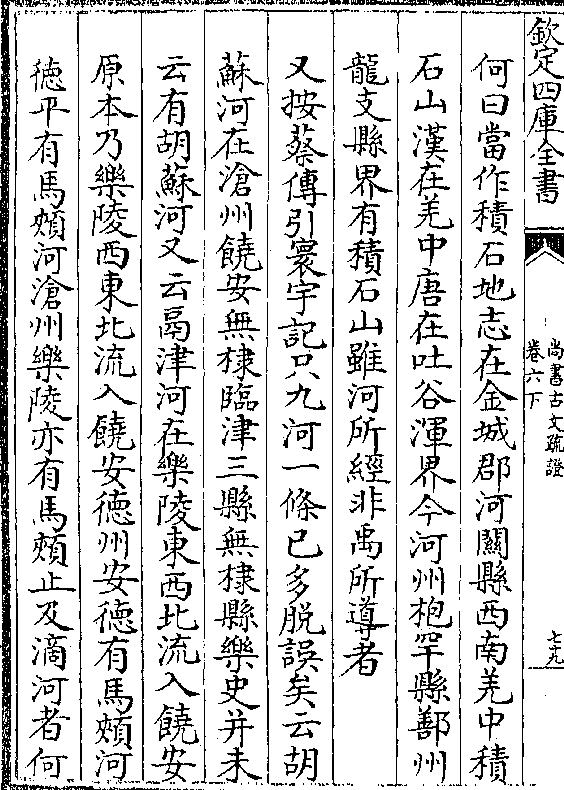 欽定四庫全書
尚書古文疏證
卷六下
七十九
何曰當作積石地志在金城郡河關縣西南羌中積
石山漢在羌中唐在吐谷渾界今河州枹罕縣鄯州
龍支縣界有積石山雖河所經非禹所導者
又按蔡傳引寰宇記只九河一條已多脱誤矣云胡
蘇河在滄州饒安無棣臨津三縣無棣縣樂史并未
云有胡蘇河又云鬲津河在樂陵東西北流入饒安
原本乃樂陵西東北流入饒安德州安德有馬頰河
德平有馬頰河滄州樂陵亦有馬頰止及滴河者何